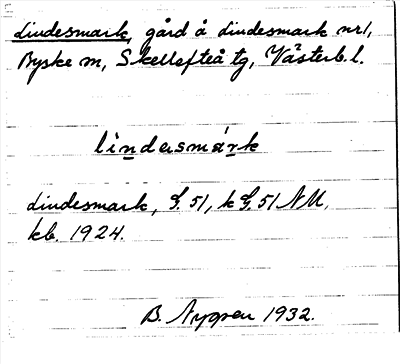 Lindesmark, gård å Lindesmark nr 1,
Byske sn, Skellefteå tg, Västerb. l.
lindersmárk
Lindesmark, G. 51, k G. 51 NM,
kb. 1924.
B. Nygren 1932.